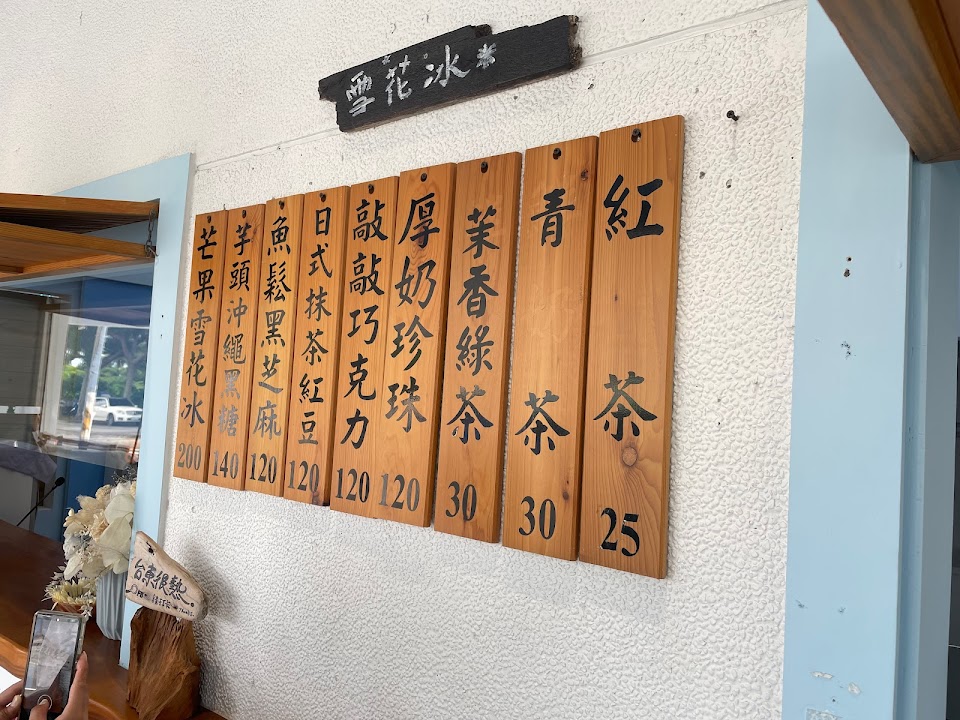 雪花冰
紅茶
25
青茶
30
茉香綠茶
30
厚奶珍珠
120
敲敲巧克力
120
日式抹茶紅豆
120
魚鬆黑芝麻
120
芋頭沖繩黑糖
140
芒果雪花冰
200
台東很熱